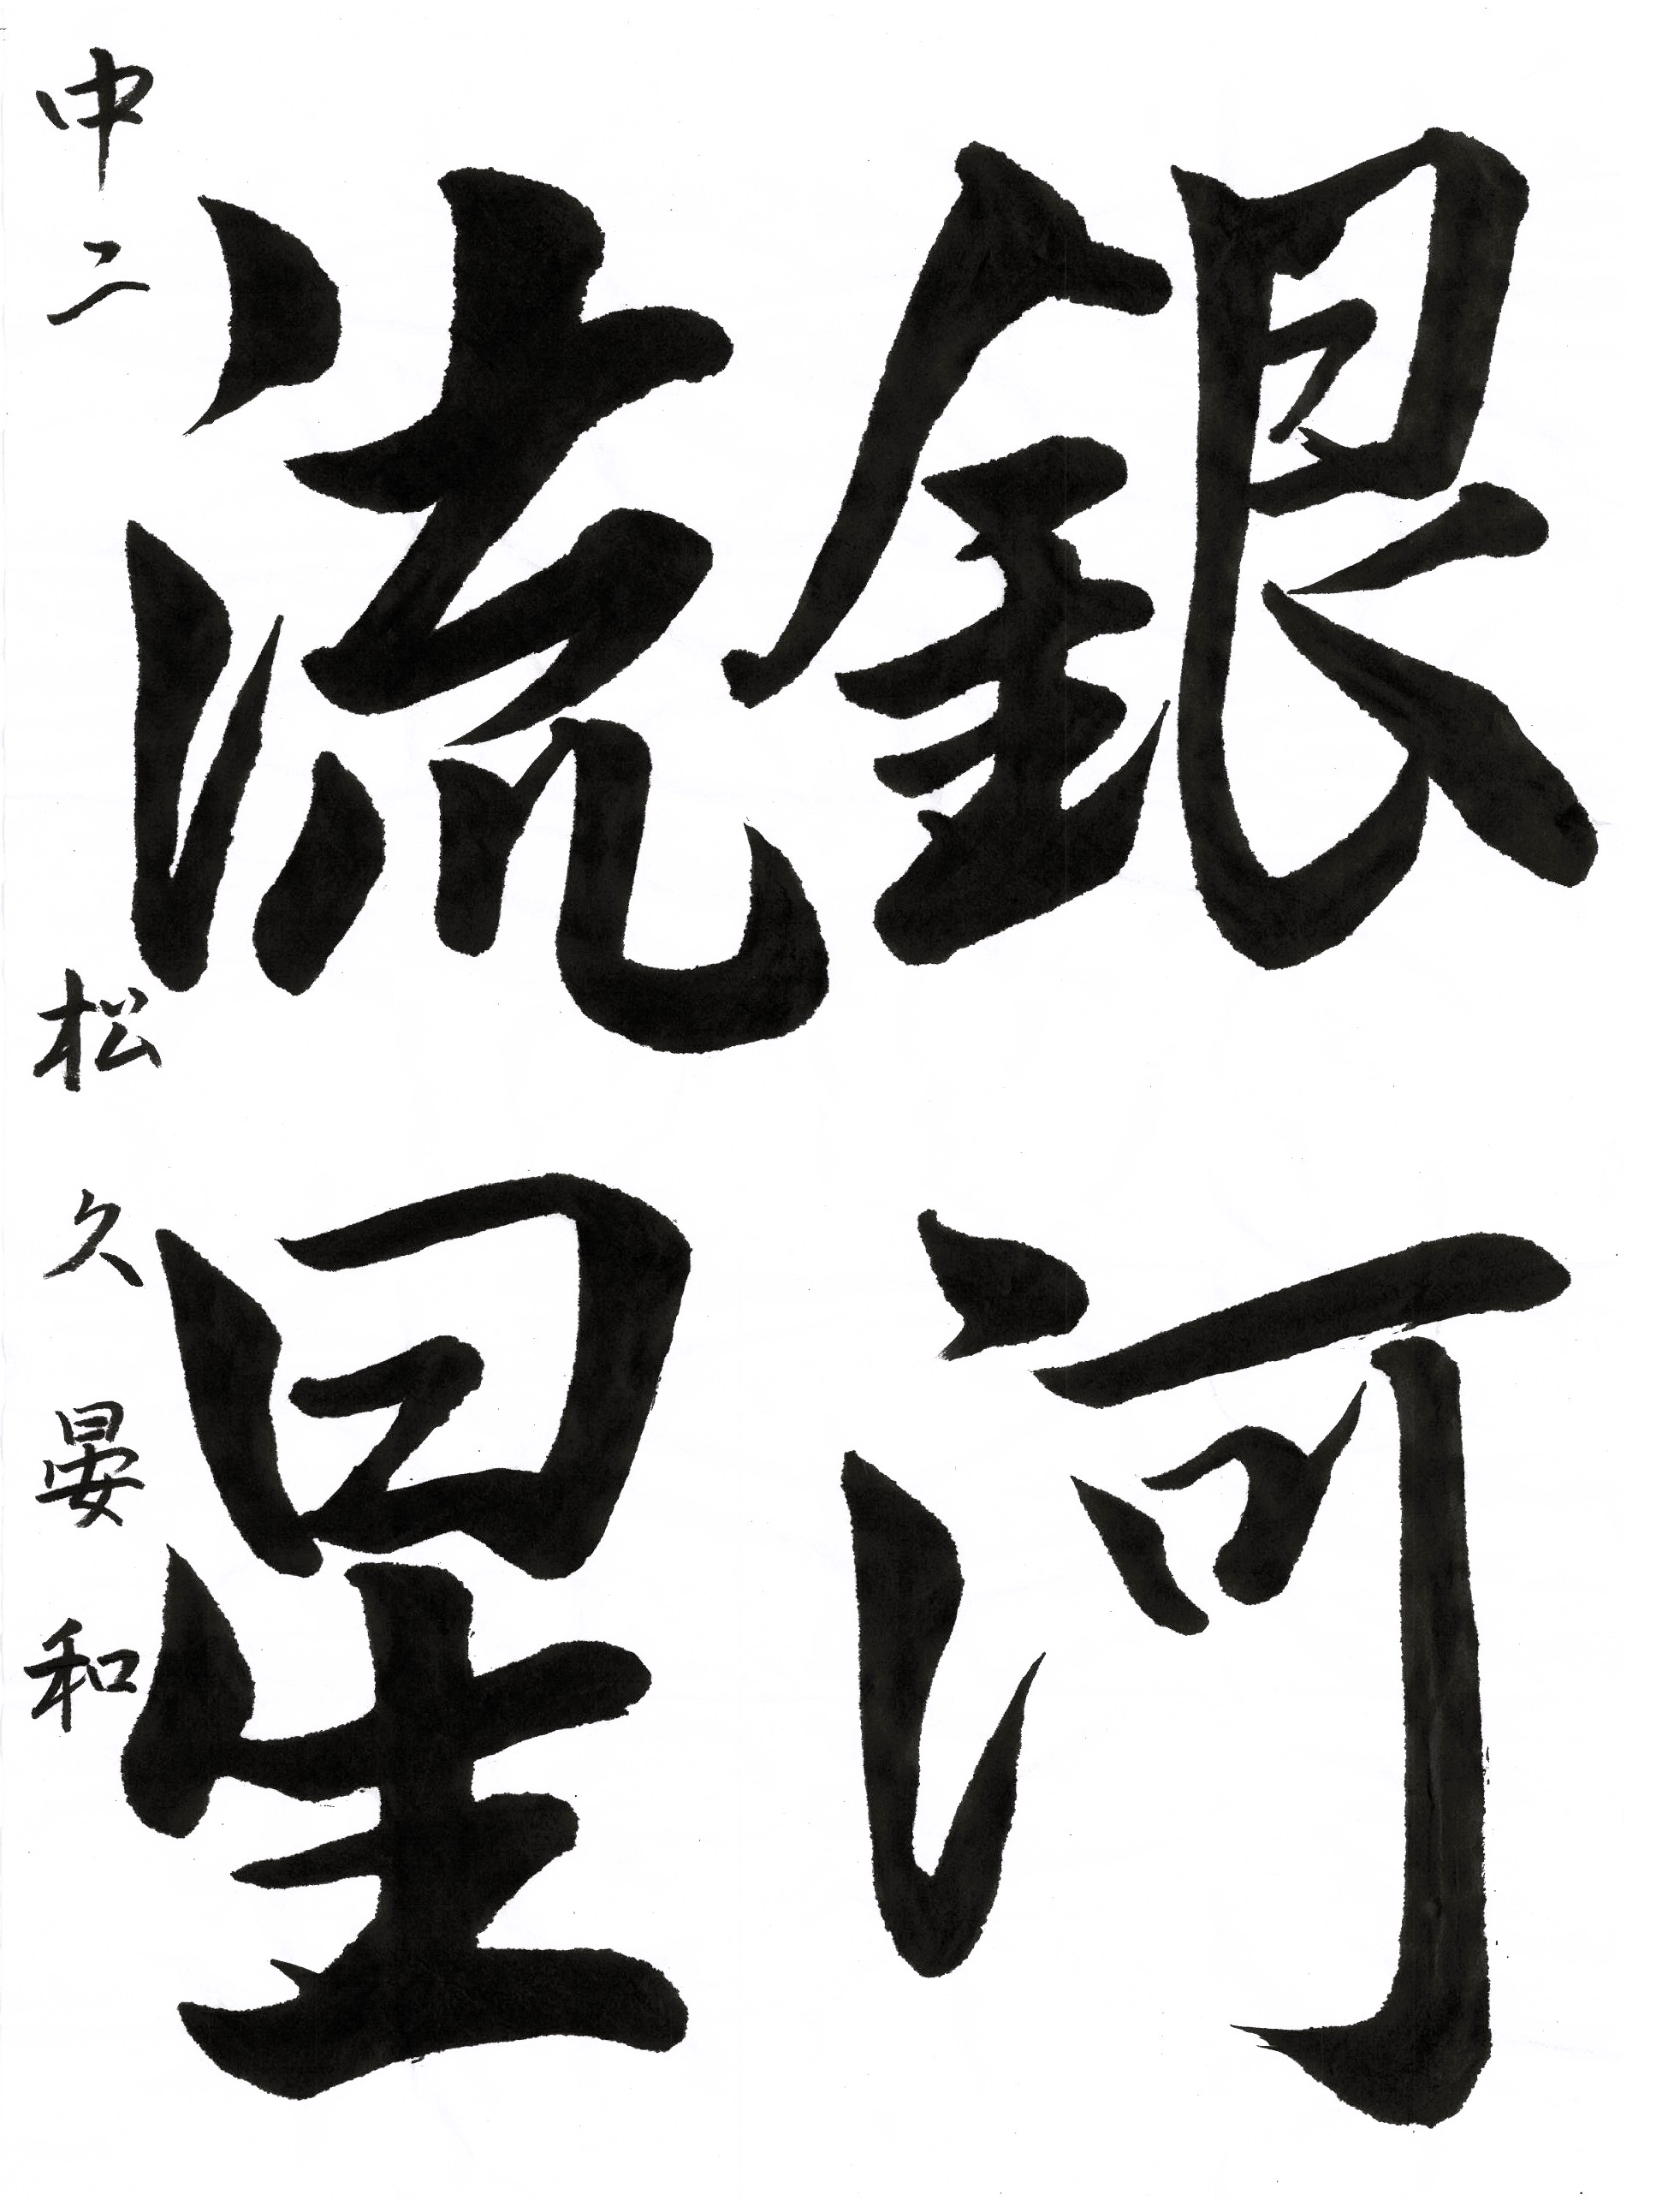 銀河
流星
中二 松久晏和